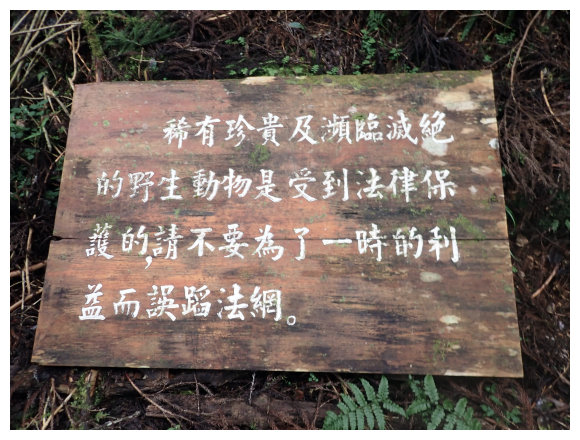 稀有珍貴及瀕臨滅絕
的野生動物是受到法律保
護的,請不要為了一時的利
益而誤蹈法網。